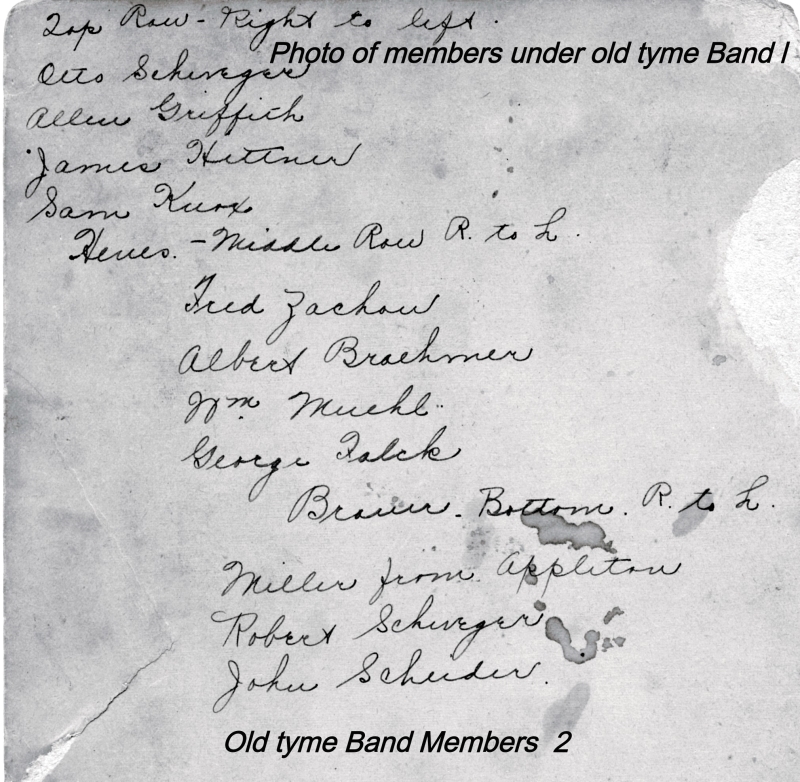 Top Row - Right to left.
Photo of members under old tyme Band I
Otto Schweger
Allen Griffith
James Hettner
Sam Knox
Heues. - Middle Row R. to L.
Fred Zachow
Albert Braehmer
Wm Muehl.
George Falck
Brauer - Bottom. R. to L.
Miller from Appleton
Robert Schweger
John Scheider.
Old tyme Band Members 2